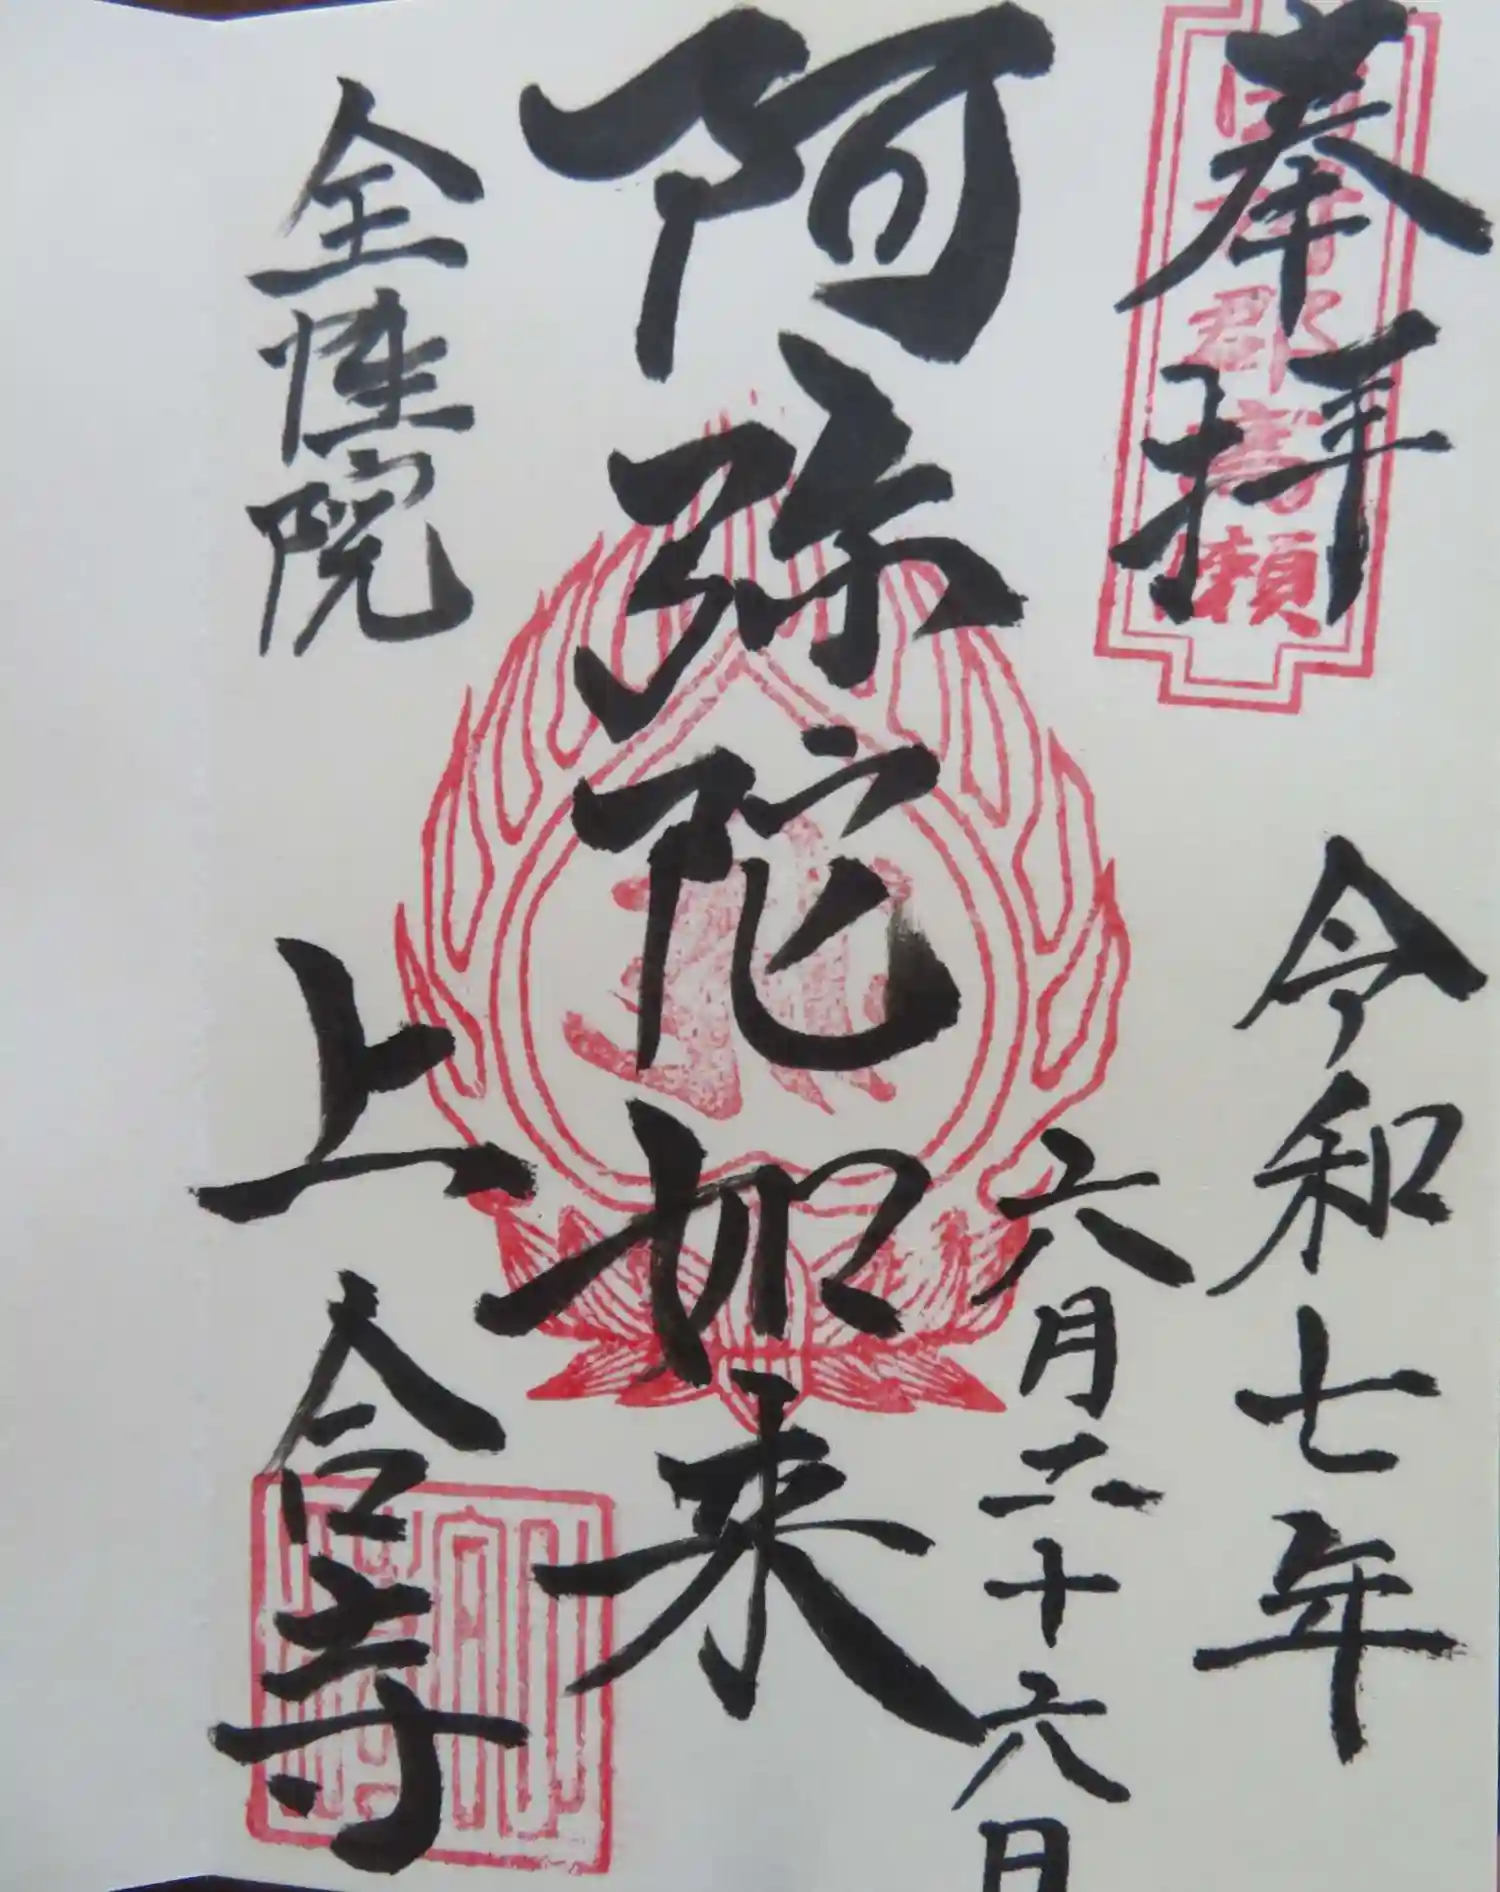 奉拝
令和七年
六月二十六日
阿弥陀如来
全性院
上合寺